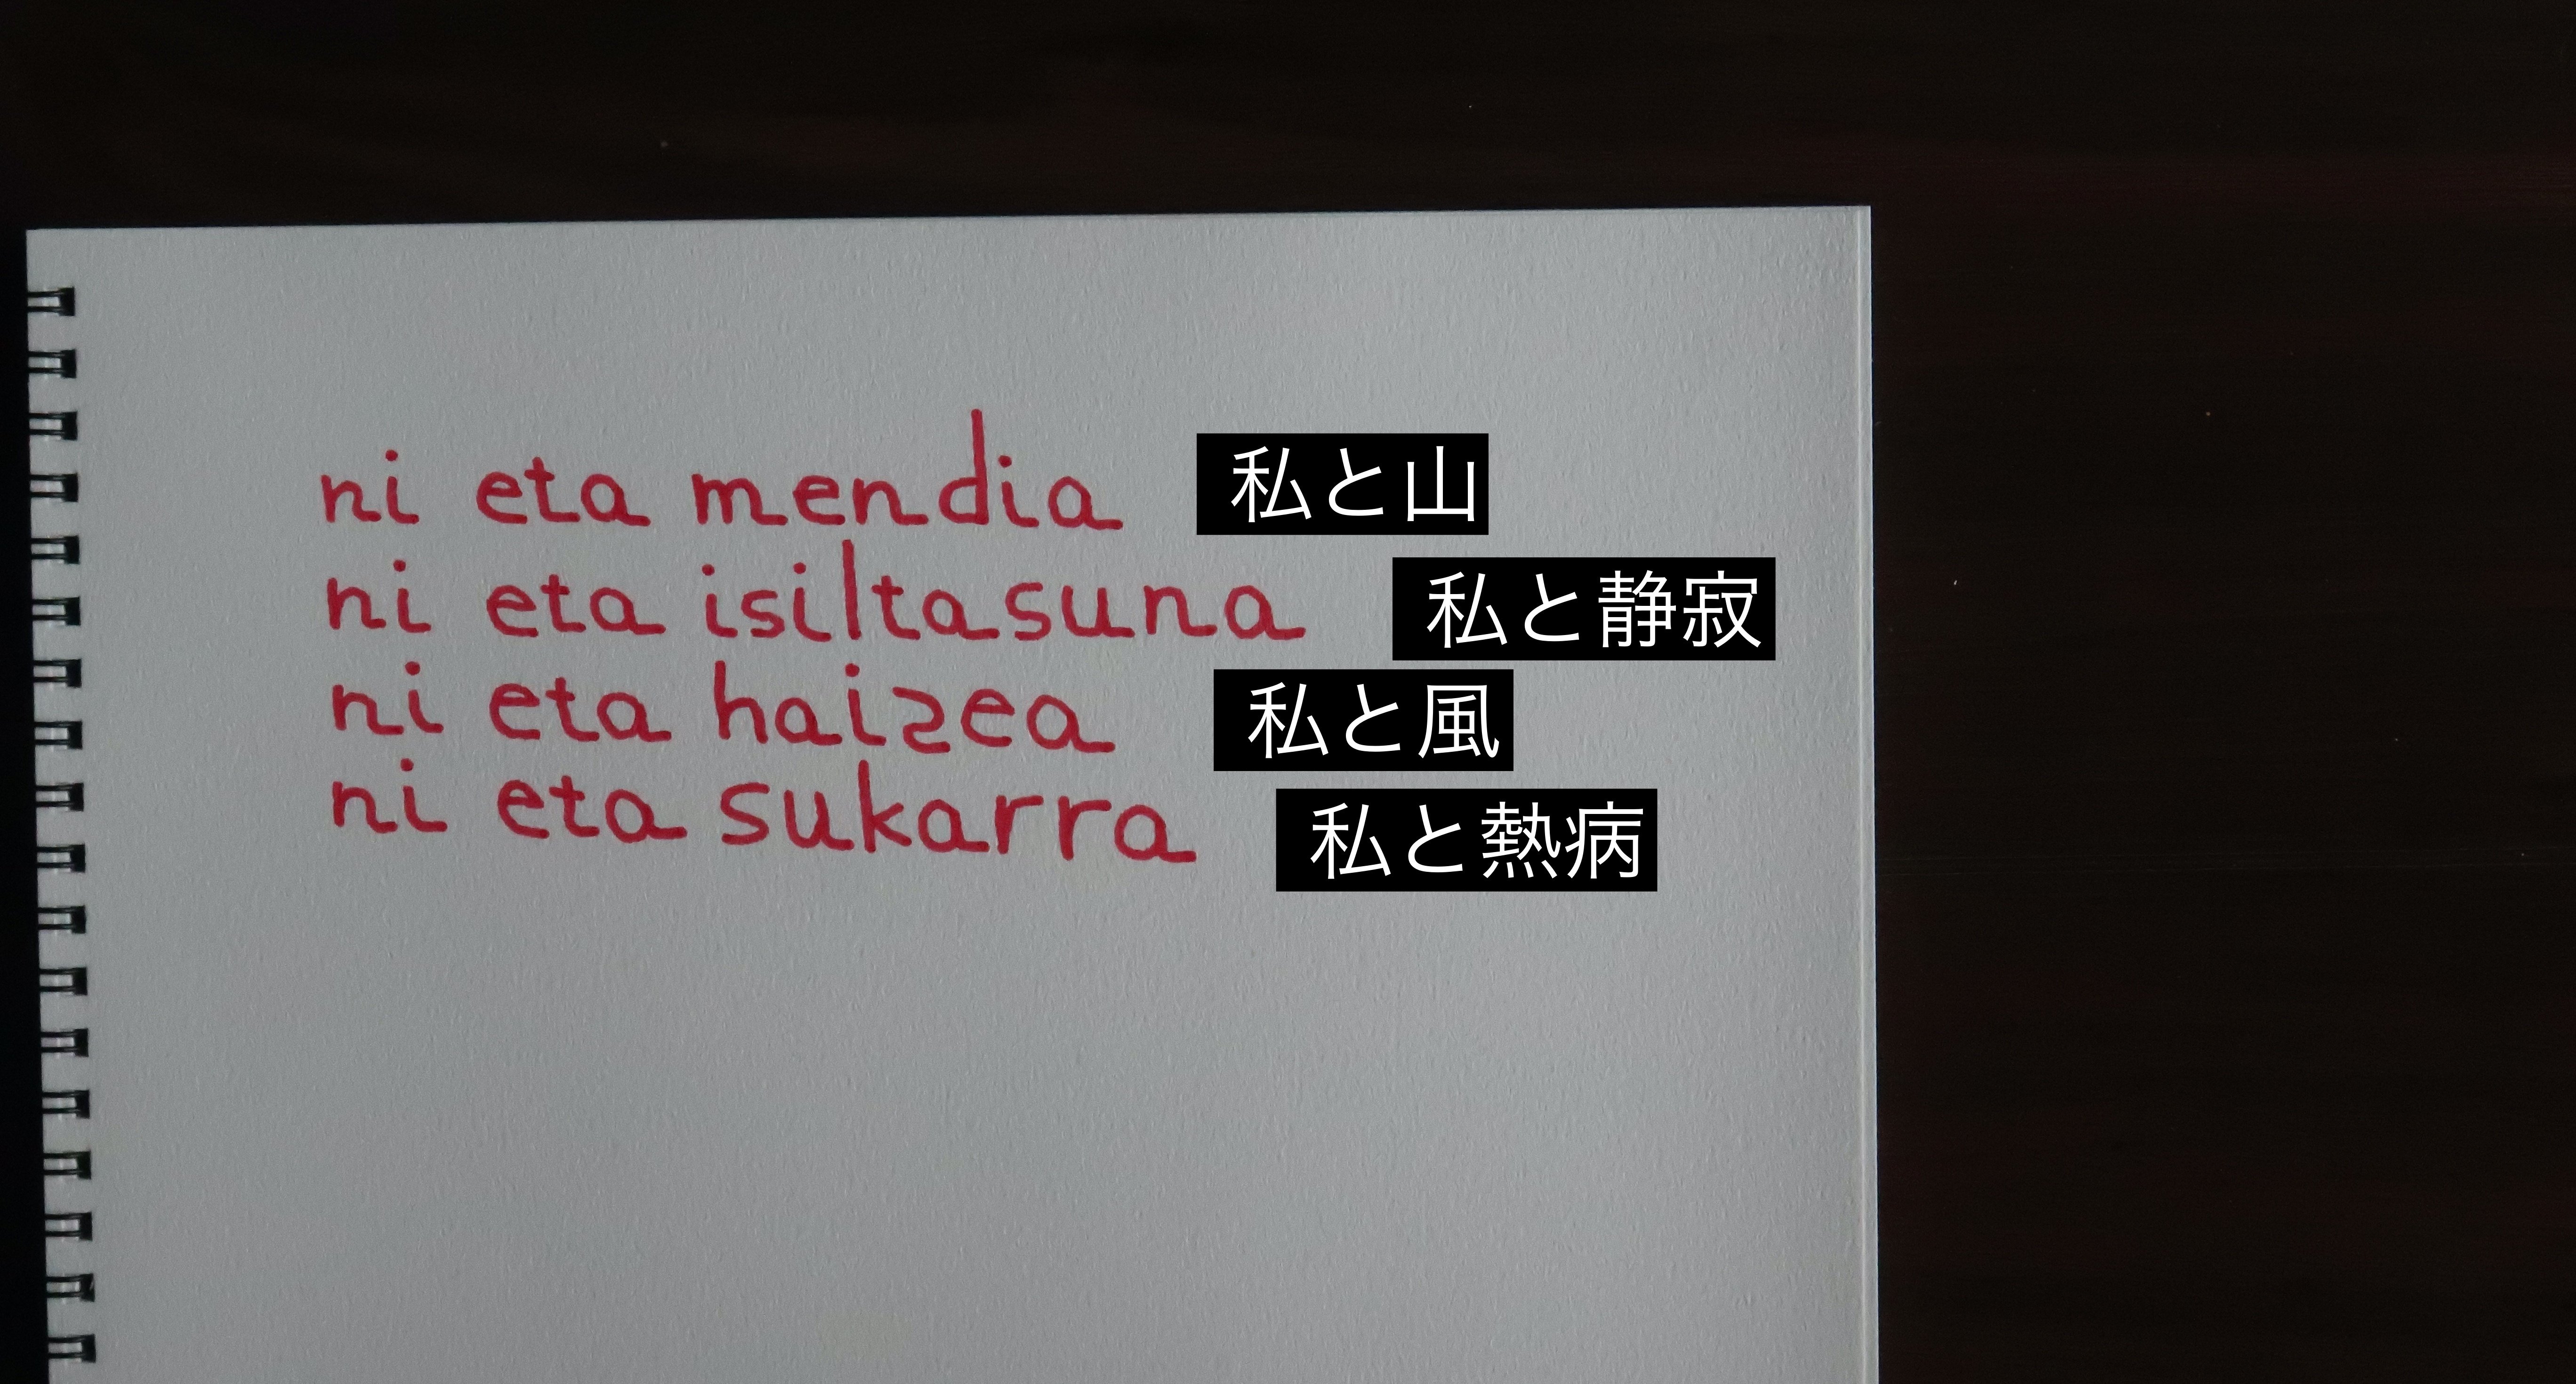 ni eta mendia 私と山
ni eta isiltasuna 私と静寂
ni eta haizea 私と風
ni eta sukarra 私と熱病